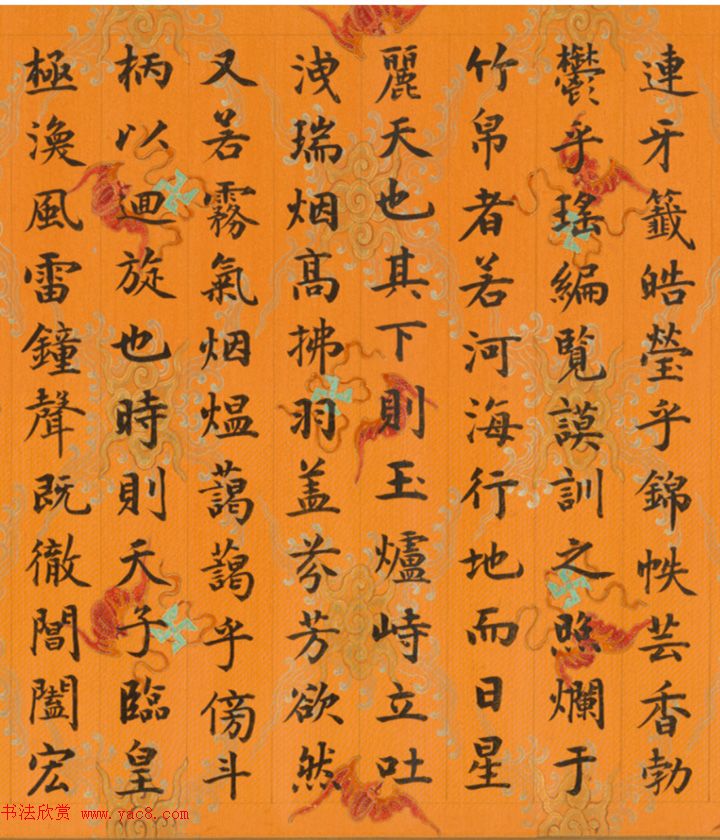 連牙籤皓瑩乎錦帙芸香勃
鬱乎瑤編覽謨訓之照爛于
竹帛者若河海行地而日星
麗天也其下則玉爐峙立吐
洩瑞烟高拂羽蓋芬芳欲然
又若霧氣烟煴藹藹乎傍斗
柄以迴旋也時則天子臨皇
極渙風雷鐘聲既徹閶闔宏
书法欣赏 www.yac8.com